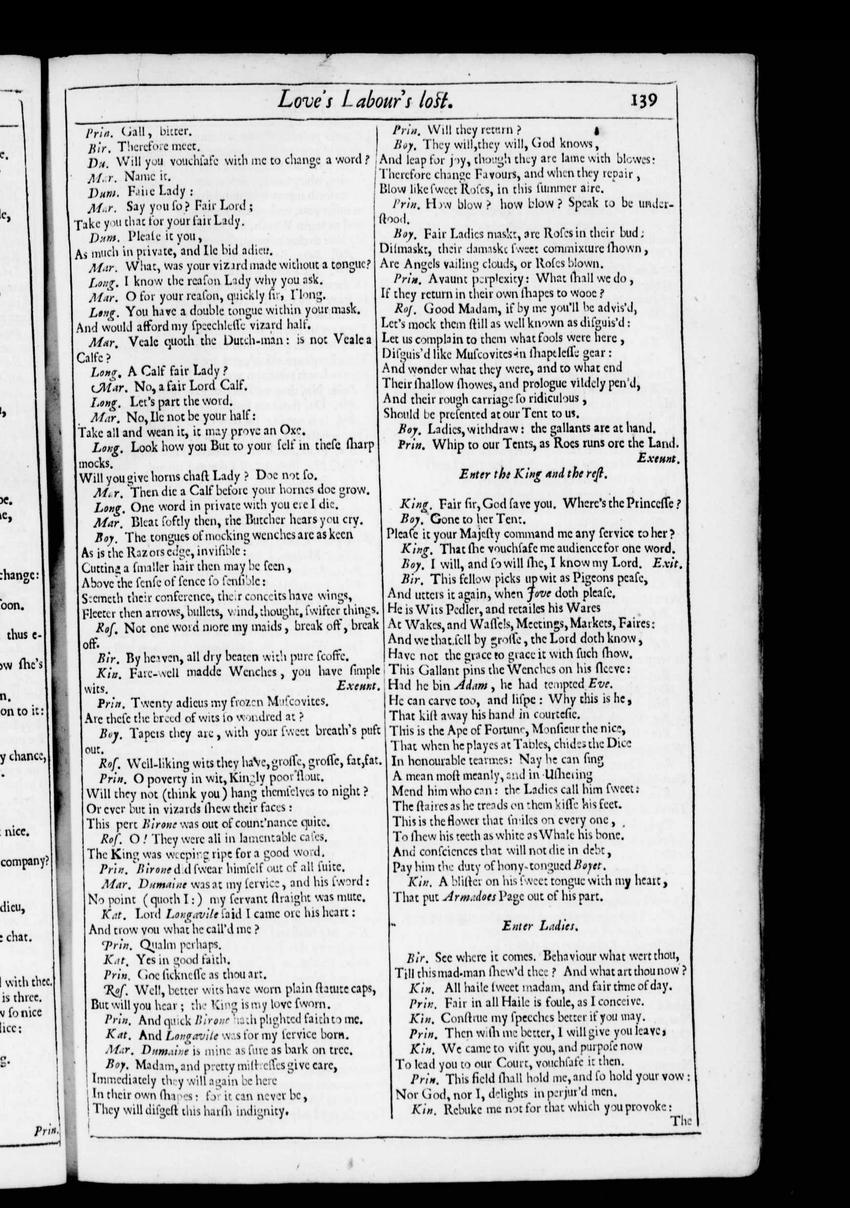 Love's Labour's lost.
139
Prin. Gall, bitter.
Bir. Therefore meet.
Du. Will you vouchſafe with me to change a word?
Mar. Name it.
Dum. Faire Lady:
Mar. Say you ſo? Fair Lord;
Take you that for your fair Lady.
Dum. Pleaſe it you,
As much in private, and Ile bid adieu.
Mar. What, was your vizard made without a tongue?
Long. I know the reaſon Lady why you ask.
Mar. O for your reaſon, quickly ſir, I long.
Long. You have a double tongue within your mask.
And would afford my ſpeechleſſe vizard half.
Mar. Veale quoth the Dutch-man: is not Veale a
Calfe?
Long. A Calf fair Lady?
Mar. No, a fair Lord Calf.
Long. Let's part the word.
Mar. No, Ile not be your half:
Take all and wean it, it may prove an Oxe.
Long. Look how you But to your ſelf in theſe ſharp
mocks.
Will you give horns chaſt Lady? Doe not ſo.
Mar. Then die a Calf before your hornes doe grow.
Long. One word in private with you ere I die.
Mar. Bleat ſoftly then, the Butcher hears you cry.
Boy. The tongues of mocking wenches are as keen
As is the Razors edge, inviſible:
Cutting a ſmaller hair then may be ſeen,
Above the ſenſe of ſence ſo ſenſible:
Seemeth their conference, their conceits have wings,
Fleeter then arrows, bullets, wind, thought, ſwifter things.
Roſ. Not one word more my maids, break off, break
off.
Bir. By heaven, all dry beaten with pure ſcoffe.
Kin. Fare-well madde Wenches, you have ſimple
wits. Exeunt.
Prin. Twenty adieus my frozen Muſcovites.
Are theſe the breed of wits ſo wondred at?
Boy. Tapers they are, with your ſweet breath's puft
out.
Roſ. Well-liking wits they have, groſſe, groſſe, fat, fat.
Prin. O poverty in wit, Kingly poor flout.
Will they not (think you) hang themſelves to night?
Or ever but in vizards ſhew their faces:
This pert Birone was out of count'nance quite.
Roſ. O! They were all in lamentable caſes.
The King was weeping ripe for a good word.
Prin. Birone did ſwear himſelf out of all ſuite.
Mar. Dumaine was at my ſervice, and his ſword:
No point (quoth I:) my ſervant ſtraight was mute.
Kat. Lord Longavile ſaid I came ore his heart:
And trow you what he call'd me?
Prin. Qualm perhaps.
Kat. Yes in good faith.
Prin. Goe ſickneſſe as thou art.
Roſ. Well, better wits have worn plain ſtatute caps,
But will you hear; the King is my love ſworn.
Prin. And quick Birone hath plighted faith to me.
Kat. And Longavile was for my ſervice born.
Mar. Dumaine is mine as ſure as bark on tree.
Boy. Madam, and pretty miſtreſſes give eare,
Immediately they will again be here
In their own ſhapes: for it can never be,
They will digeſt this harſh indignity.
Prin. Will they return?
Boy. They will, they will, God knows,
And leap for joy, though they are lame with blowes:
Therefore change Favours, and when they repair,
Blow like ſweet Roſes, in this ſummer aire.
Prin. How blow? how blow? Speak to be under-
ſtood.
Boy. Fair Ladies maskt, are Roſes in their bud:
Diſmaskt, their damaske ſweet commixture ſhown,
Are Angels vailing clouds, or Roſes blown.
Prin. Avaunt perplexity: What ſhall we do,
If they return in their own ſhapes to wooe?
Roſ. Good Madam, if by me you'll be advis'd,
Let's mock them ſtill as well known as diſguis'd:
Let us complain to them what fools were here,
Diſguis'd like Muſcovites in ſhapeleſſe gear:
And wonder what they were, and to what end
Their ſhallow ſhowes, and prologue vildely pen'd,
And their rough carriage ſo ridiculous,
Should be preſented at our Tent to us.
Boy. Ladies, withdraw: the gallants are at hand.
Prin. Whip to our Tents, as Roes runs ore the Land.
Exeunt.
Enter the King and the reſt.
King. Fair ſir, God ſave you. Where's the Princeſſe?
Boy. Gone to her Tent.
Pleaſe it your Majeſty command me any ſervice to her?
King. That ſhe vouchſafe me audience for one word.
Boy. I will, and ſo will ſhe, I know my Lord. Exit.
Bir. This fellow picks up wit as Pigeons peaſe,
And utters it again, when Jove doth pleaſe.
He is Wits Pedler, and retailes his Wares
At Wakes, and Waſſels, Meetings, Markets, Faires:
And we that ſell by groſſe, the Lord doth know,
Have not the grace to grace it with ſuch ſhow.
This Gallant pins the Wenches on his ſleeve:
Had he bin Adam, he had tempted Eve.
He can carve too, and liſpe: Why this is he,
That kiſt away his hand in courteſie.
This is the Ape of Fortune, Monſieur the nice,
That when he playes at Tables, chides the Dice
In honourable tearmes: Nay he can ſing
A mean moſt meanly, and in Uſhering
Mend him who can: the Ladies call him ſweet:
The ſtaires as he treads on them kiſſe his feet.
This is the flower that ſmiles on every one,
To ſhew his teeth as white as Whale his bone.
And conſciences that will not die in debt,
Pay him the duty of hony-tongued Boyet.
Kin. A bliſter on his ſweet tongue with my heart,
That put Armadoes Page out of his part.
Enter Ladies.
Bir. See where it comes. Behaviour what wert thou,
Till this mad-man ſhew'd thee? And what art thou now?
Kin. All haile ſweet madam, and fair time of day.
Prin. Fair in all Haile is foule, as I conceive.
Kin. Conſtrue my ſpeeches better if you may.
Prin. Then wiſh me better, I will give you leave,
Kin. We came to viſit you, and purpoſe now
To lead you to our Court, vouchſafe it then.
Prin. This field ſhall hold me, and ſo hold your vow:
Nor God, nor I, delights in perjur'd men.
Kin. Rebuke me not for that which you provoke:
The